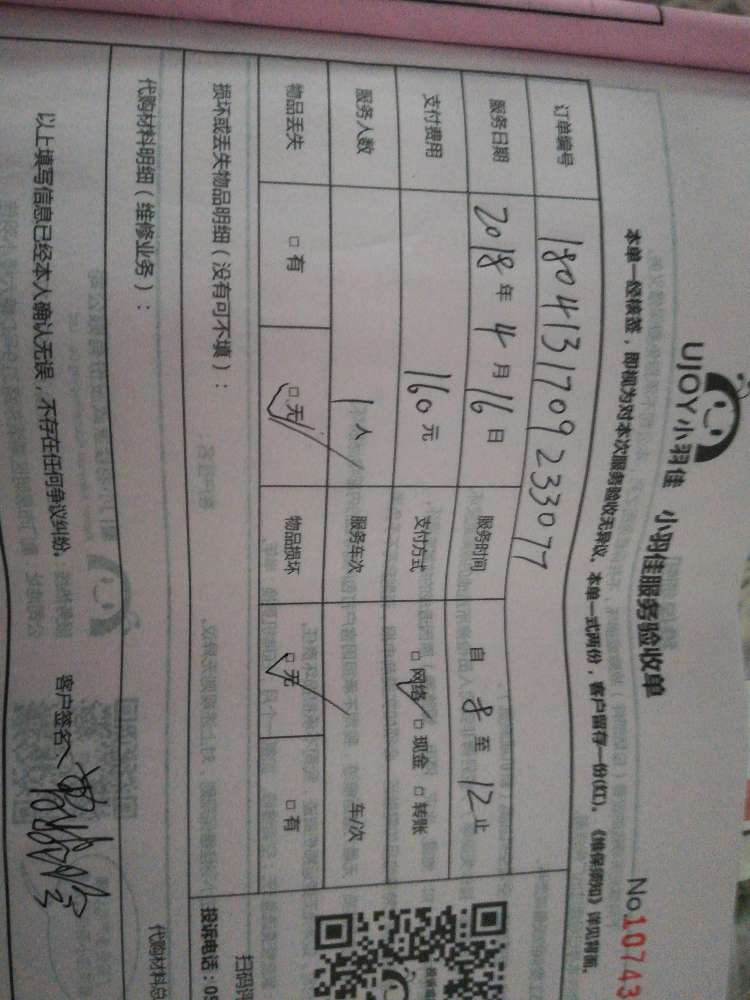 UJOY小羽佳 小羽佳服务验收单
No.10743
本单一经核签，即视为对本次服务验收无异议。本单一式两份，客户留存一份(红)。《维保须知》详见背面。
订单编号 1804131709233077
服务日期 2018年4月16日 服务时间 自8至12止
支付费用 160元 支付方式 □网络 □现金 □转账
服务人数 1人 服务车次 车/次
物品丢失 □有 □无 物品损坏 □无 □有
损坏或丢失物品明细（没有可不填）：
代购材料明细（维修业务）：
代购材料总
投诉电话：05
以上填写信息已经本人确认无误，不存在任何争议纠纷。 客户签名